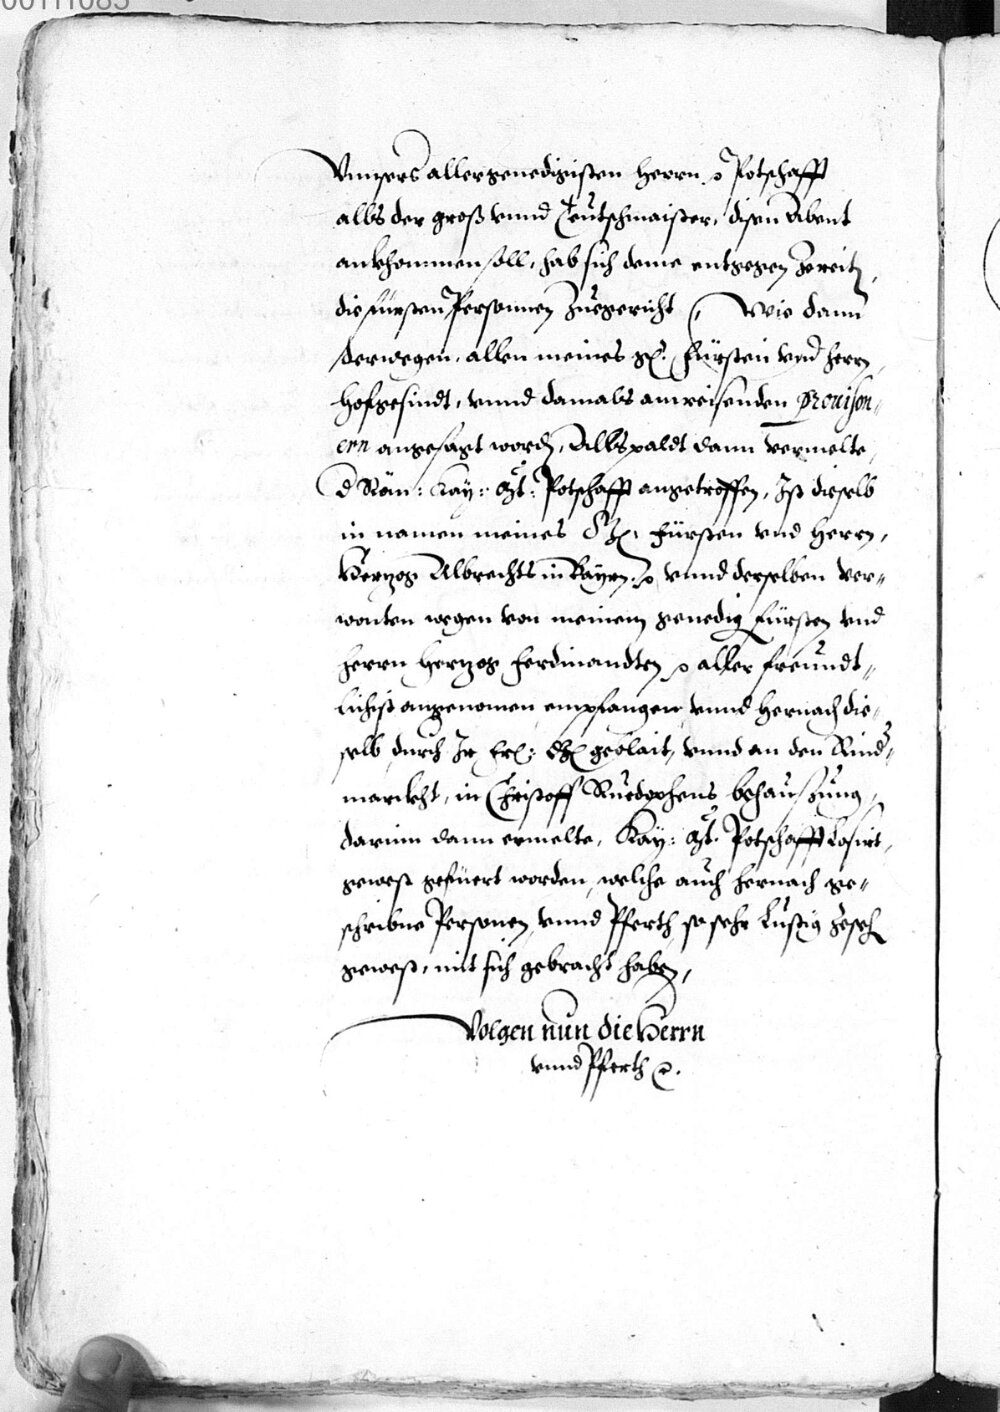 00111085
Vnnsers allergenedigisten Herrn ꝛc Potschafft
alls der groß vnnd Teutschmaister, disen Abent
ankhommen soll, hab sich deme entgegen Zereitn,
die fürsten Personnen Zuegericht, Wie dann
derwegen, allen meines g: Fürsten vnd herrn
hofgesindt, vnnd damals anweisenden Prouison-
ern angesagt wordn, Allspaldt dann vermelte
d Röm: Kay: Mt: Potschafft angetroffen, Ist dieselb
in namen meines G: Fürsten vnd Herrn,
Hertzog Albrechts in Bayrn ꝛc vnnd derselben ver-
wonten wegen von meinem genedig Fürsten vnd
herrn Hertzog Ferdinandten ꝛc aller freundt-
lichist angenomen, empfangen vnnd hernach die-
selb durch Ir Fr: G: geblait, vnnd an den Rind-
marckht, in Christoff Ruedophens behausZung,
darinn dann ermelte, Kay: Mt: Potschafft Losirt,
gewest gefuert worden, welche auch hernach ge-
schribne Personen, vnnd Pferth, so sehr Lustig Zesehn
gewest, mit sich gebracht haben,
Volgen nun die Herrn
vnnd Pferth ꝛc.